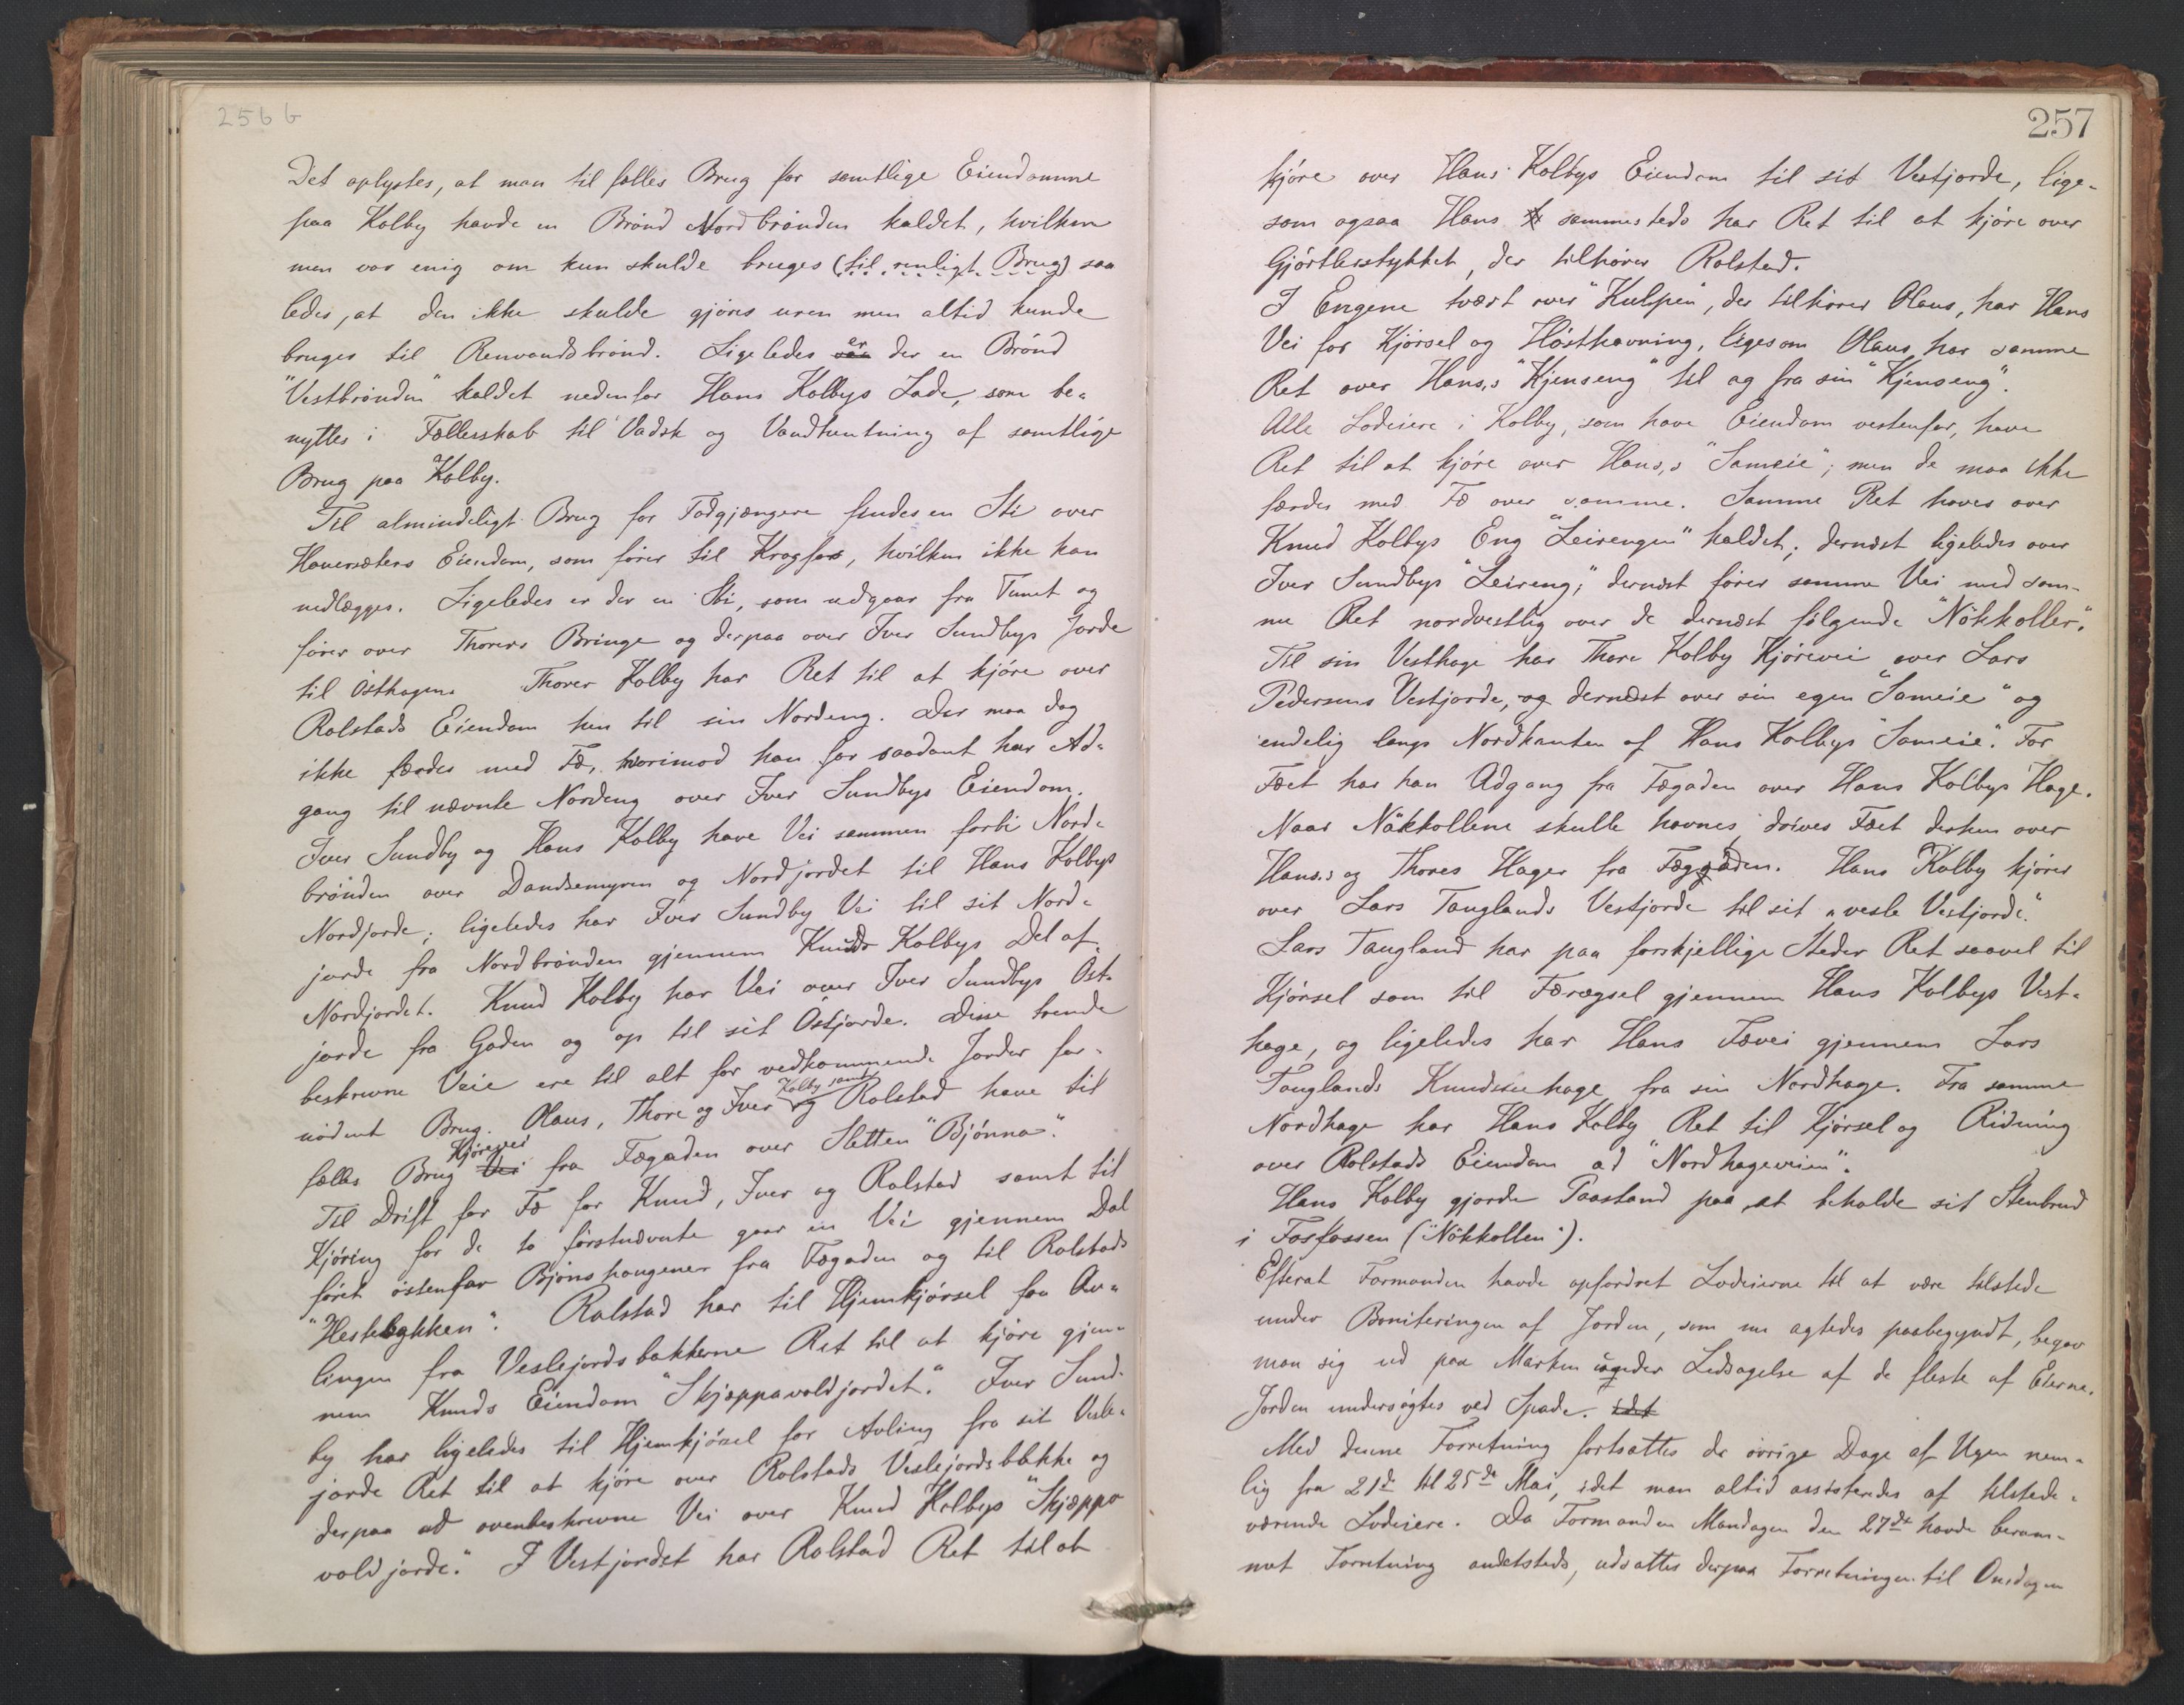 256 b
Det oplystes, at man til fælles Brug for samtlige Eiendomme
paa Kolby havde en Brønd Nordbrønden kaldet, hvilken
man var enig om kun skulde bruges (til renligt Brug) saa
ledes, at den ikke skulde gjøres uren men altid kunde
bruges til Renvandsbrønd. Ligeledes var er der en Brønd
"Vestbrønden" kaldet nedenfor Hans Kolbys Lade, som be-
nyttes i Fællesskab til Vadsk og Vandhentning af samtlige
Brug paa Kolby.
Til almindeligt Brug for Fodgjængere findes en Sti over
Haversæters Eiendom, som fører til Kragfos, hvilken ikke kan
nedlægges. Ligeledes er der en Sti, som udgaar fra Tunet og
fører over Thorers Bringe og derpaa over Iver Sundbys Jorde
til Østhagen. Thorer Kolby har Ret til at kjøre over
Rolstads Eiendom hen til sin Nordeng. Der maa dog
ikke færdes med Fæ, hvorimod han for saadant har Ad-
gang til nævnte Nordeng over Iver Sundbys Eiendom.
Iver Sundby og Hans Kolby have Vei sammen forbi Nord-
brønden over Dandsemyren og Nordjordet til Hans Kolbys
Nordjorde; ligeledes har Iver Sundby Vei til sit Nord-
jorde fra Nordbrønden gjennem Knuds Kolbys Del af
Nordjordet. Knud Kolby har Vei over Iver Sundbys Øst-
jorde fra Gaden og op til sit Østjorde. Disse trende
beskrevne Veie ere til alt for vedkommende Jorder for-
nødent Brug. Olaus, Thore og Iver og Kolby samt Rolstad have til
fælles Brug Vei Kjørevei fra Fægaden over Sletten "Bjønna".
Til Drift for Fæ for Knud, Iver og Rolstad samt til
Kjøring for de to førstnævnte gaar en Vei gjennem Dal
føret østenfor Bjønshaugener fra Fægaden og til Rolstads
"Hesteløkken". Rolstad har til Hjemkjørsel fra Av-
lingen fra Veslejordsbakkerne Ret til at kjøre gjen-
nem Knuds Eiendom "Skjæppavoldjordet." Iver Sund-
by har ligeledes til Hjemkjørsel for Avling fra sit Vesle-
jorde Ret til at kjøre over Rolstads Veslejordsbakke og
derpaa ad ovenbeskrevne Vei over Knud Kolbys "Skjæppa
voldjorde." I Vestjordet har Rolstad Ret til at
257
kjøre over Hans Kolbys Eiendom til sit Vestjorde, lige-
som ogsaa Hans sammesteds har Ret til at kjøre over
Gjørtlerstykket, der tilhører Rolstad.
I Engene tvært over "Kulpen", der tilhører Olaus, har Hans
Vei for Kjørsel og Høsthavning, ligesom Olaus har samme
Ret over Hans,s "Kjenseng" til og fra sin "Kjenseng".
Alle Lodeiere i Kolby, som have Eiendom vestenfor, have
Ret til at kjøre over Hans,s "Sameie"; men de maa ikke
færdes med Fæ over samme. Samme Ret haves over
Knud Kolbys Eng "Leirengen" kaldet, dernæst ligeledes over
Iver Sundbys "Leireng;" dernæst fører samme Vei med sam-
me Ret nordvestlig over de dernæst følgende "Nökkoller."
Til sin Vesthage har Thore Kolby Kjørevei over Lars
Pedersens Vestjorde, og dernæst over sin egen "Sameie" og
endelig langs Nordkanten af Hans Kolbys "Sameie". For
Fæet har han Adgang fra Fægaden over Hans Kolbys Hage.
Naar Nökkollene skulle havnes drives Fæet derhen over
Hans,s og Thores Hager fra Fægaden. Hans Kolby kjører
over Lars Tanglands Vestjorde til sit "vesle Vestjorde."
Lars Tangland har paa forskjellige Steder Ret saavel til
Kjørsel som til Færægsel gjennem Hans Kolbys Vest-
hage, og ligeledes har Hans Fævei gjennem Lars
Tanglands Knudssehage fra sin Nordhage. Fra samme
Nordhage har Hans Kolby Ret til Kjørsel og Ridning
over Rolstads Eiendom ad "Nordhageveien".
Hans Kolby gjorde Paastand paa at beholde sit Stenbrud
i Fosfossen ("Nökkollen").
Efterat Formanden havde opfordret Lodeierne til at være tilstede
under Boniteringen af Jorden, som nu agtedes paabegyndt, begav
man sig ud paa Marken under Ledsagelse af de fleste af Eierne.
Jorden undersøgtes ved Spade. idet
Med denne Forretning fortsattes de øvrige Dage af Ugen nem-
lig fra 21de til 25de Mai, idet man altid assisteredes af tilstede-
værende Lodeiere. Da Formanden Mandagen den 27de havde beram-
met Forretning andetsteds, udsattes derpaa Forretningen til Onsdagen